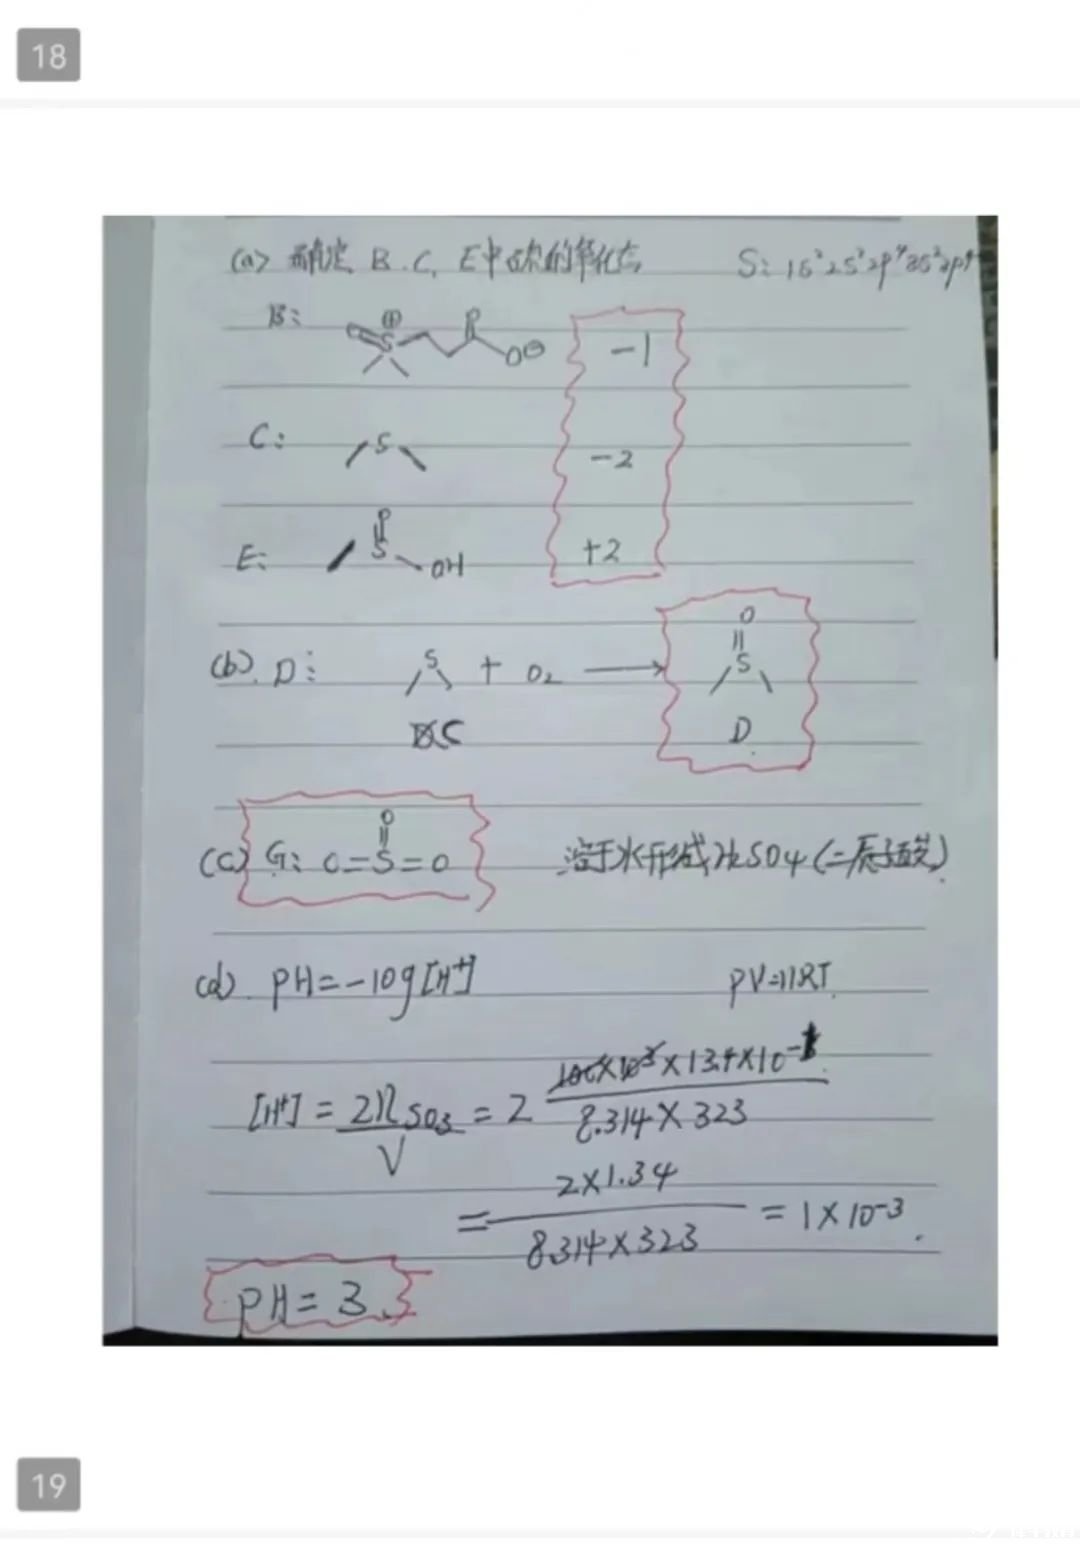 18
(a) 确定 B、C、E中硫的氧化态 S: 1s²2s²2p⁴3s²2p⁴
B: S⊕ O⊖ -1
C: S -2
E: S OH +2
(b). D: S + O₂ → O=S
C D
(c) G: O=S=O O 溶于水形成H₂SO₄(二质子酸).
(d). PH=-log[H⁺] PV=nRT.
[H⁺] = 2nSO₃/V = 2 100×10³×13.4×10⁻¹/8.314×323
= 2×1.34/8.314×323 = 1×10⁻³.
PH=3.
19